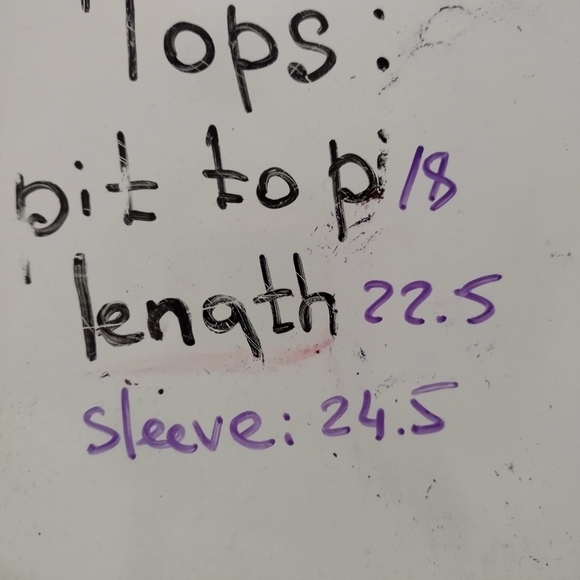 Tops:
pit to pi 18
length 22.5
sleeve: 24.5